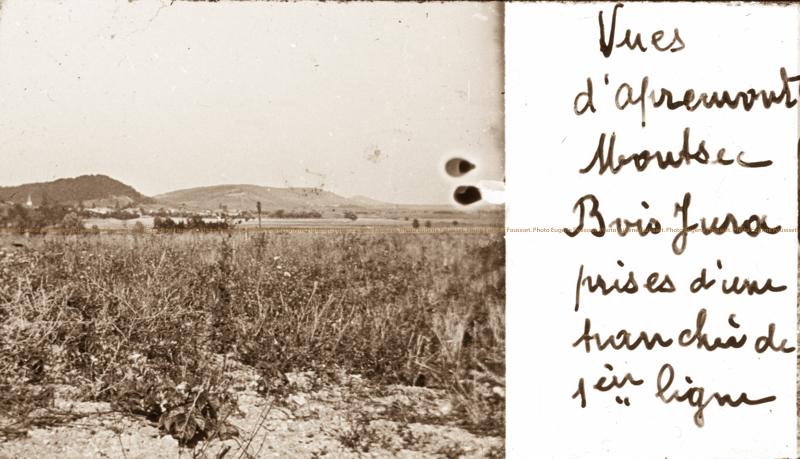 Vues
d'apremont
Montsec
Bois Jura
prises d'une
tranchée de
1èr ligne
Fousset. Photo Eugène Fousset. Photo Eugène Fousset. Photo Eugène Fousset. Photo Eugène Fousset